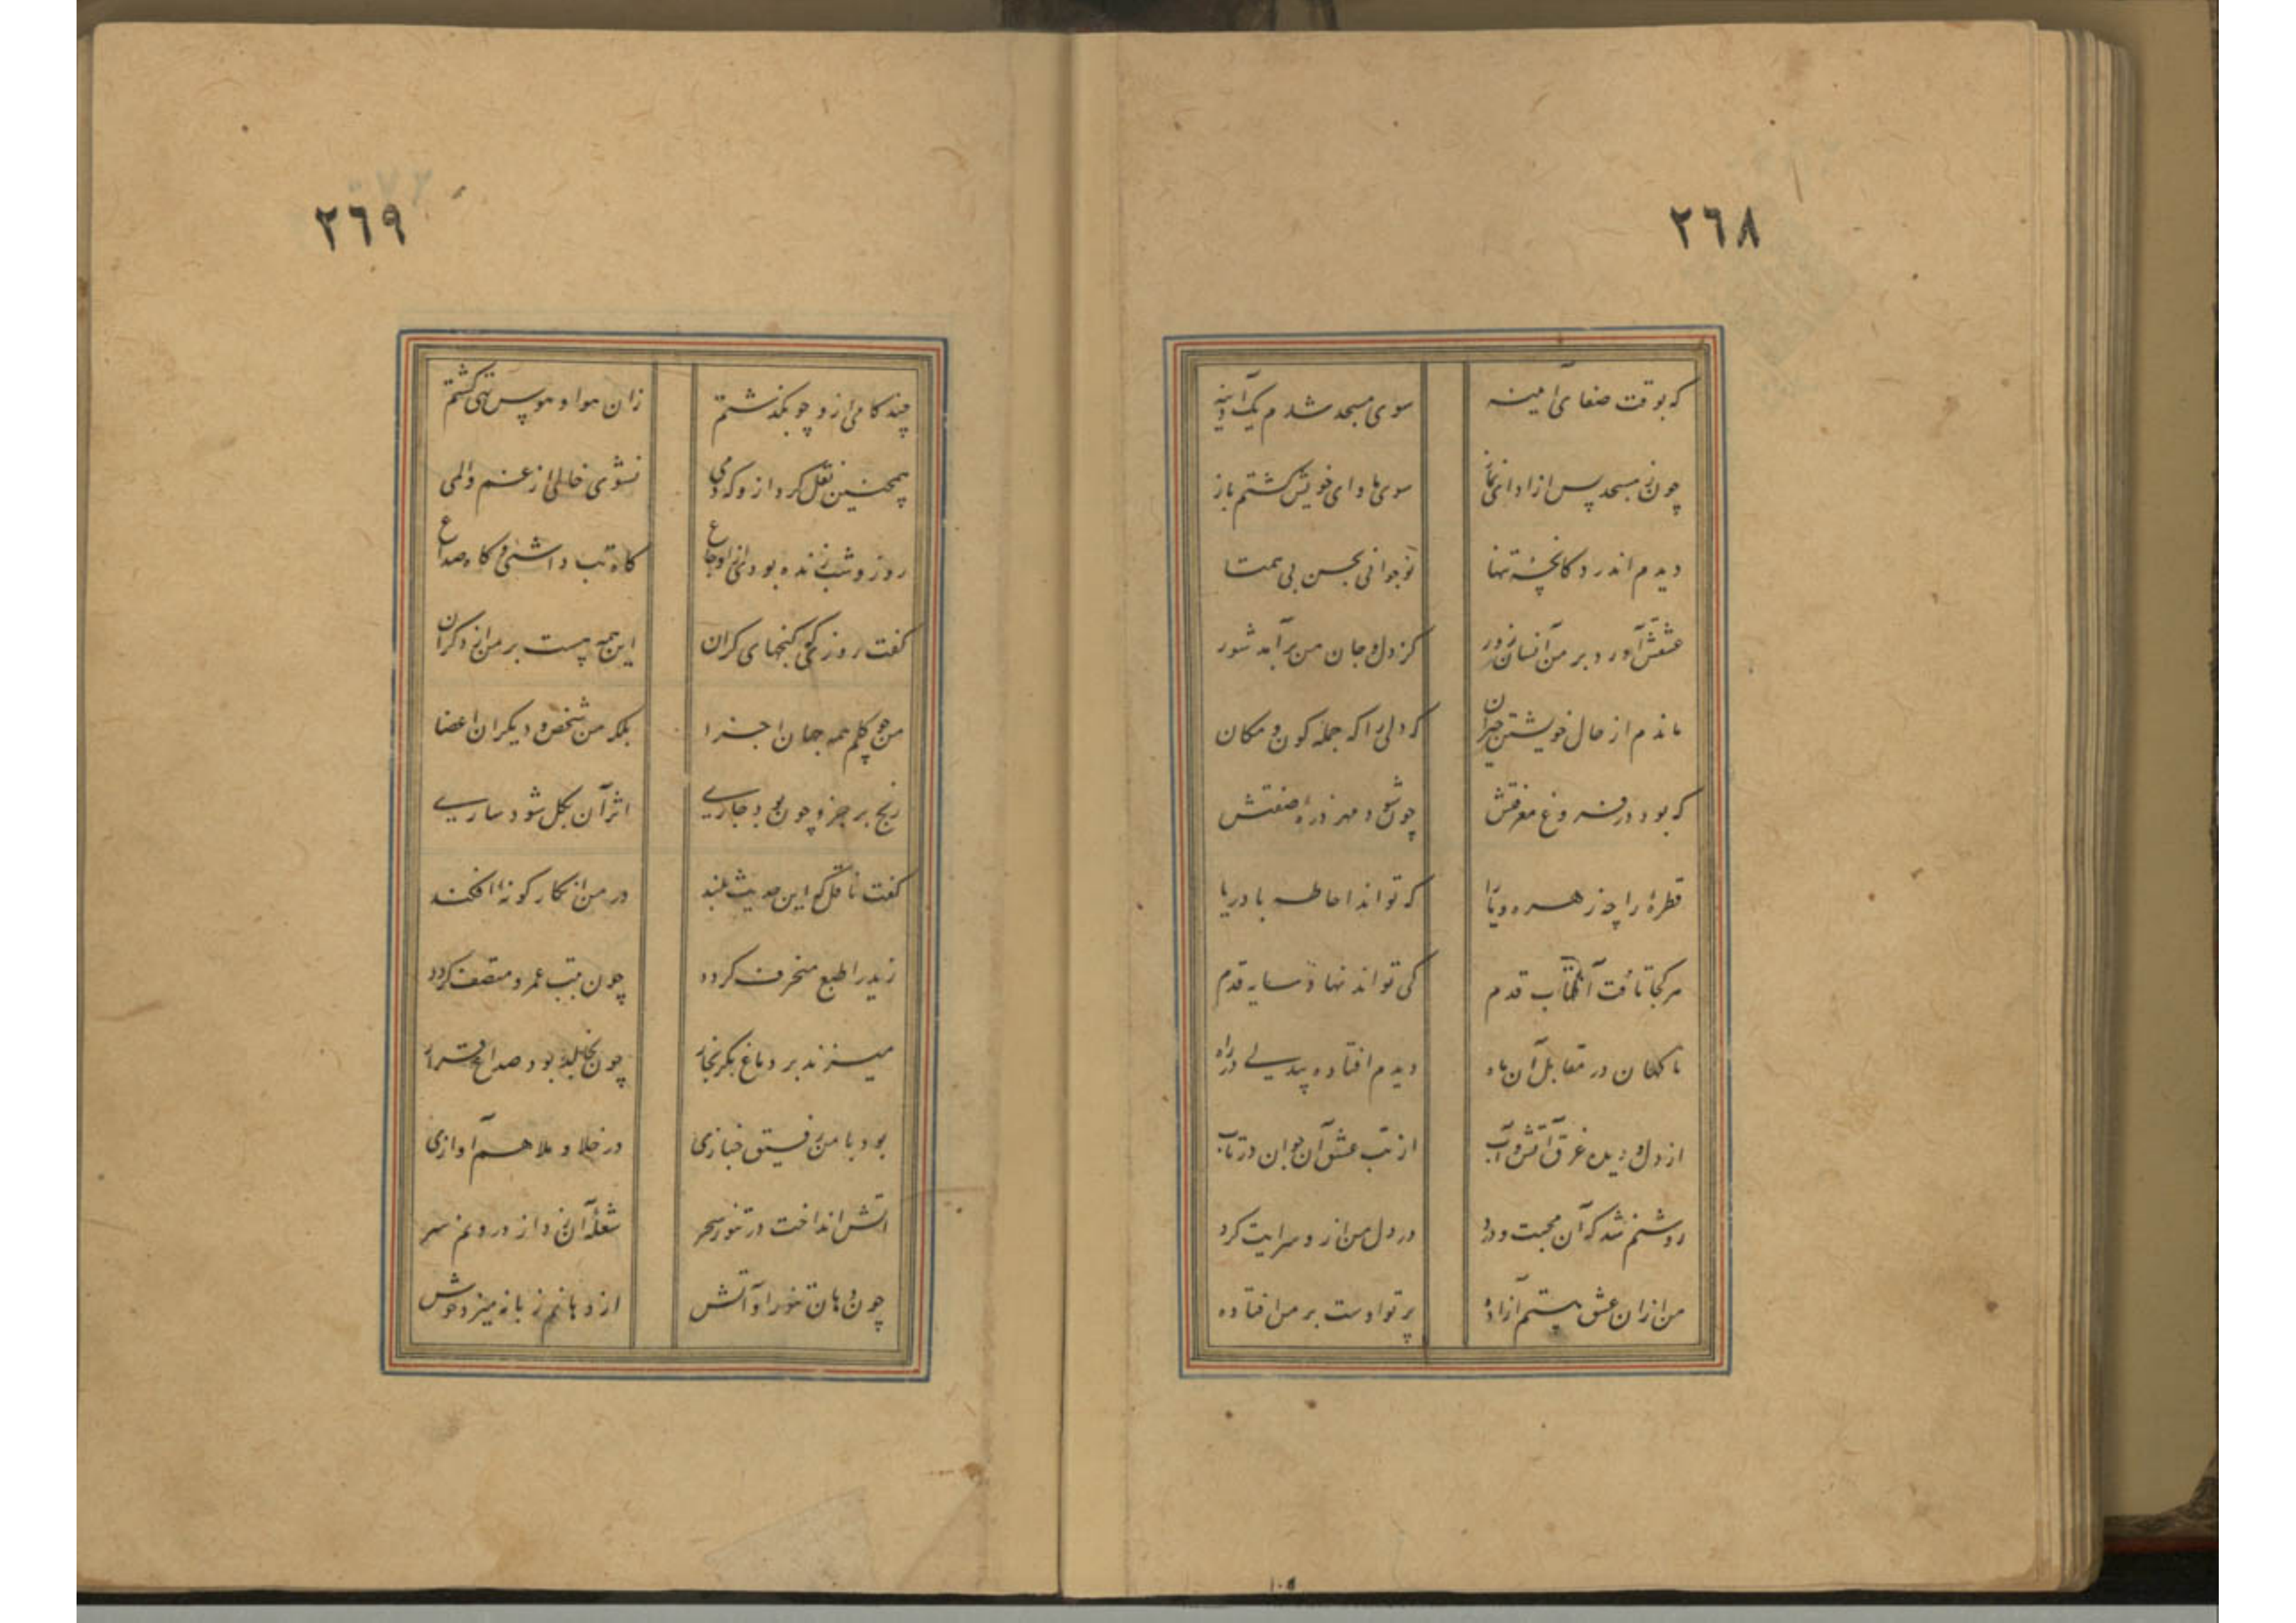 ٢٦٨
که بوقت صفای آمینه سوی مسجد شدم یک آدینه
چون ز مسجد پس از ادای نماز سوی ماوای خویش کشتم باز
دیدم اندر دکانچهٔ تنها نوجوانی بحسن بی همتا
عشقش آورد بر من آنسان زور کز دل و جان من برآمد شور
ماندم از حال خویشتن حیران که دلی را که جمله کون و مکان
که بود در فروغ معرفتش چون شود مهر ذره صفتش
قطرهٔ را چه زهره و یارا که تواند احاطه با دریا
هر کجا تافت آفتاب قدم کی تواند نهاد سایه قدم
ناکهان در مقابل آن ماه دیدم افتاده بیدلی در راه
از دل و دیده غرق آتش و آب از تب عشق آن جوان در تاب
روشنم شد که آن محبت و درد در دل من از و سرایت کرد
من ازان عشق نیستم آزاده پرتو اوست بر من افتاده
٢٦٩
چند کامی از و چو بکذشتم زان هوا و هوس تهی کشتم
همچنین نقل کرد از و که دمی نشوی خالی از غم و المی
روز و شب زنده بودی از اوجاع کاه تب داشتی و کاه صداع
کفت روزی که رنجهای کران این همه هست بر من از دکران
من چو کلم همه جهان اجزا بلکه من شخص و دیکران اعضا
رنج بر جزو چون بود جاری اثر آن بکل شود ساری
کفت ناقل که این حدیث بلند در من انکار کونه افکند
زید را طبع منحرف کرده چون بتب عمرو متصف کردد
میزند بر دماغ بکر بخار چون بخالد بود صداع قرار
بود با من رفیق خبازی در خلا و ملا هم آوازی
آتش انداخت در تنور سحر شعله آن زد از درونم سر
چون دهان تنور او آتش از دهانم زبانه میزد خوش